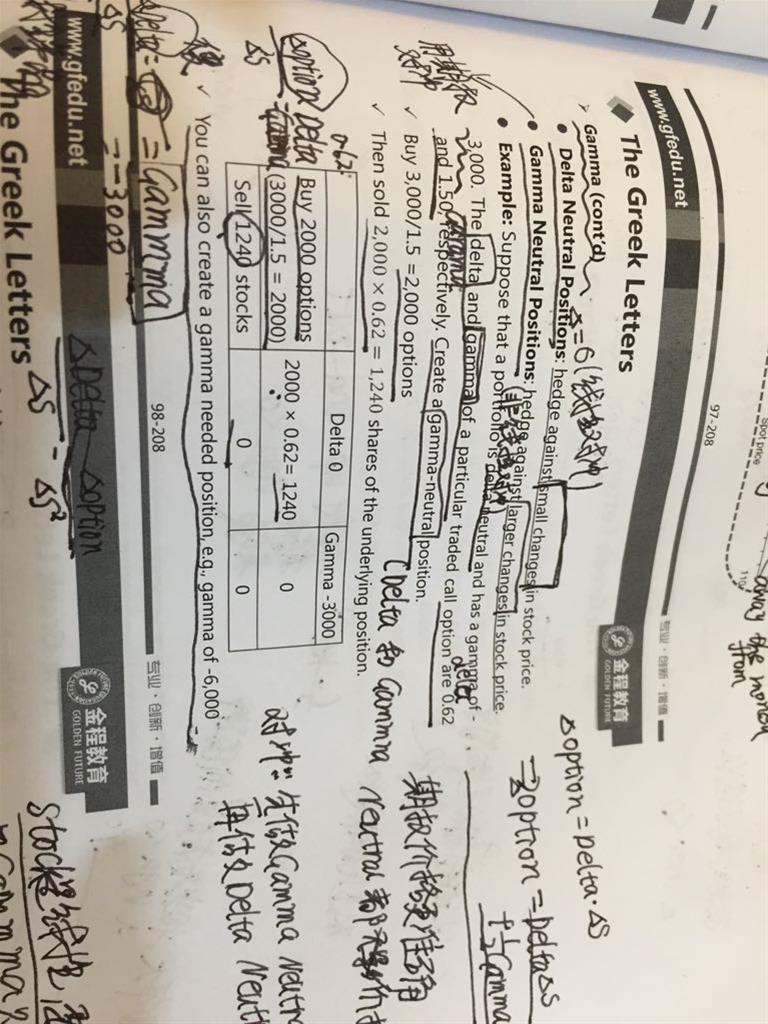 Spot price
110
away the money
from
97-208
www.gfedu.net
专业·创新·增值
The Greek Letters
金程教育
GOLDEN FUTURE
Gamma (cont'd)
Delta Neutral Positions: hedge against small changes in stock price.
Gamma Neutral Positions: hedge against larger changes in stock price.
Example: Suppose that a portfolio is delta neutral and has a gamma of -
3,000. The delta and gamma of a particular traded call option are 0.62
and 1.50 respectively. Create a gamma-neutral position.
Buy 3,000/1.5 =2,000 options
Then sold 2,000 × 0.62 = 1,240 shares of the underlying position.
Delta 0 Gamma -3000
Buy 2000 options
(3000/1.5 = 2000) 2000 × 0.62= 1240 0
Sell 1240 stocks 0 0
You can also create a gamma needed position, e.g., gamma of -6,000
Δoption = Delta·ΔS
option = DeltaΔS
Gamma
delta
gamma
用期权
对冲
(Delta 和 Gamma Neutral
对冲: 先做Gamma Neutr
再做 Delta Neut
0.62:
option Delta
ΔS
= Gamma
-3000
98-208
专业·创新·增值
www.gfedu.net
金程教育
GOLDEN FUTURE
The Greek Letters
ΔDelta Δoption
ΔS = ΔS²
stock是线性